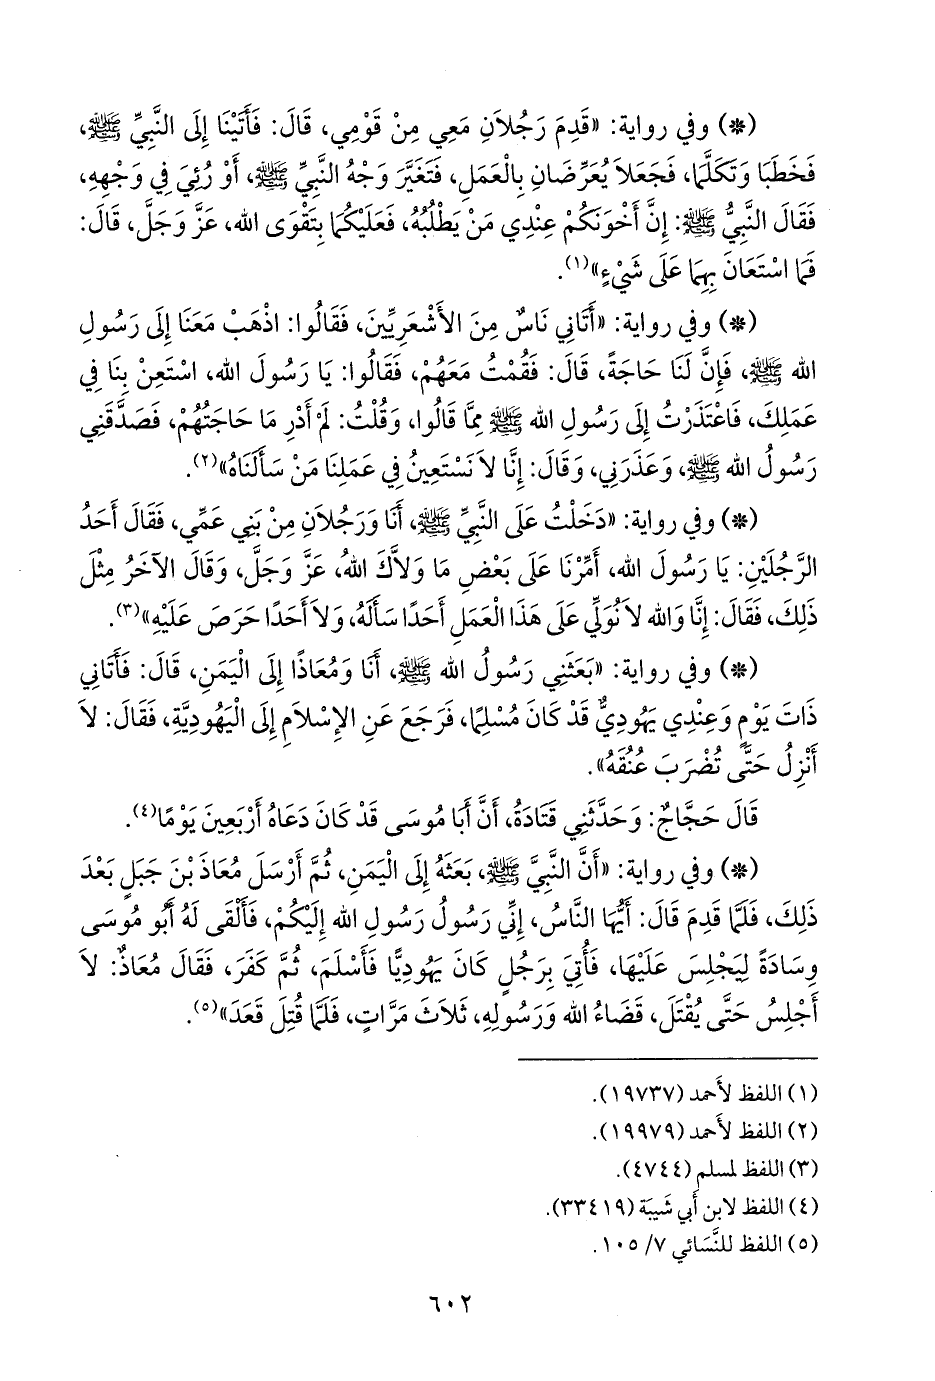 (*) وفي رواية: «قَدِمَ رَجُلاَنِ مَعِي مِنْ قَوْمِي، قَالَ: فَأَتَيْنَا إِلَى النَّبِيِّ ﷺ،
فَخَطَبَا وَتَكَلَّمَا، فَجَعَلاَ يُعَرِّضَانِ بِالْعَمَلِ، فَتَغَيَّرَ وَجْهُ النَّبِيِّ ﷺ، أَوْ رُئِيَ فِي وَجْهِهِ،
فَقَالَ النَّبِيُّ ﷺ: إِنَّ أَخْوَنَكُمْ عِنْدِي مَنْ يَطْلُبُهُ، فَعَلَيْكُمَا بِتَقْوَى الله، عَزَّ وَجَلَّ، قَالَ:
فَمَا اسْتَعَانَ بِهِمَا عَلَى شَيْءٍ»(١).
(*) وفي رواية: «أَتَانِي نَاسٌ مِنَ الأَشْعَرِيِّينَ، فَقَالُوا: اذْهَبْ مَعَنَا إِلَى رَسُولِ
الله ﷺ، فَإِنَّ لَنَا حَاجَةً، قَالَ: فَقُمْتُ مَعَهُمْ، فَقَالُوا: يَا رَسُولَ الله، اسْتَعِنْ بِنَا فِي
عَمَلِكَ، فَاعْتَذَرْتُ إِلَى رَسُولِ الله ﷺ مِمَّا قَالُوا، وَقُلْتُ: لَمْ أَدْرِ مَا حَاجَتُهُمْ، فَصَدَّقَنِي
رَسُولُ الله ﷺ، وَعَذَرَنِي، وَقَالَ: إِنَّا لاَ نَسْتَعِينُ فِي عَمَلِنَا مَنْ سَأَلَنَاهُ»(٢).
(*) وفي رواية: «دَخَلْتُ عَلَى النَّبِيِّ ﷺ، أَنَا وَرَجُلاَنِ مِنْ بَنِي عَمِّي، فَقَالَ أَحَدُ
الرَّجُلَيْنِ: يَا رَسُولَ الله، أَمِّرْنَا عَلَى بَعْضِ مَا وَلاَّكَ اللهُ، عَزَّ وَجَلَّ، وَقَالَ الآخَرُ مِثْلَ
ذَلِكَ، فَقَالَ: إِنَّا وَالله لاَ نُوَلِّي عَلَى هَذَا الْعَمَلِ أَحَدًا سَأَلَهُ، وَلاَ أَحَدًا حَرَصَ عَلَيْهِ»(٣).
(*) وفي رواية: «بَعَثَنِي رَسُولُ الله ﷺ، أَنَا وَمُعَاذًا إِلَى الْيَمَنِ، قَالَ: فَأَتَانِي
ذَاتَ يَوْمٍ وَعِنْدِي يَهُودِيٌّ قَدْ كَانَ مُسْلِمًا، فَرَجَعَ عَنِ الإِسْلاَمِ إِلَى الْيَهُودِيَّةِ، فَقَالَ: لاَ
أَنْزِلُ حَتَّى تُضْرَبَ عُنُقُهُ».
قَالَ حَجَّاجٌ: وَحَدَّثَنِي قَتَادَةُ، أَنَّ أَبَا مُوسَى قَدْ كَانَ دَعَاهُ أَرْبَعِينَ يَوْمًا(٤).
(*) وفي رواية: «أَنَّ النَّبِيَّ ﷺ، بَعَثَهُ إِلَى الْيَمَنِ، ثُمَّ أَرْسَلَ مُعَاذَ بْنَ جَبَلٍ بَعْدَ
ذَلِكَ، فَلَمَّا قَدِمَ قَالَ: أَيُّهَا النَّاسُ، إِنِّي رَسُولُ رَسُولِ الله إِلَيْكُمْ، فَأَلْقَى لَهُ أَبُو مُوسَى
وِسَادَةً لِيَجْلِسَ عَلَيْهَا، فَأُتِيَ بِرَجُلٍ كَانَ يَهُودِيًّا فَأَسْلَمَ، ثُمَّ كَفَرَ، فَقَالَ مُعَاذٌ: لاَ
أَجْلِسُ حَتَّى يُقْتَلَ، قَضَاءُ الله وَرَسُولِهِ، ثَلاَثَ مَرَّاتٍ، فَلَمَّا قُتِلَ قَعَدَ»(٥).
(١) اللفظ لأَحمد (١٩٧٣٧).
(٢) اللفظ لأَحمد (١٩٩٧٩).
(٣) اللفظ لمسلم (٤٧٤٤).
(٤) اللفظ لابن أَبي شَيبَة (٣٣٤١٩).
(٥) اللفظ للنَّسَائي ٧/ ١٠٥.
٦٠٢